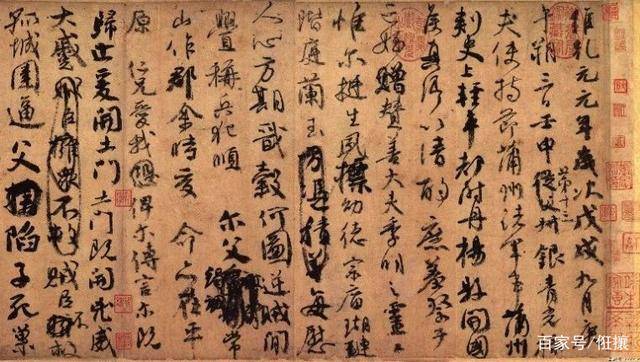 維乾元元年歲次戊戌九月庚
午朔三日壬申第十三從父叔銀青光祿
夫使持節蒲州諸軍事蒲州
刺史上輕車都尉丹楊縣開國
侯真卿以清酌庶羞祭于
亡姪贈贊善大夫季明之靈曰
惟尔挺生夙標幼德宗廟瑚璉
階庭蘭玉方憑積善每慰
人心方期戩穀何圖逆賊間
釁稱兵犯順 尔父竭誠常
山作郡余時受 命亦在平
原 仁兄愛我俾尔傳言尔既
歸止爰開土門土門既開兇威
大蹙賊臣擁眾不救賊臣不救
孤城圍逼父陷子死巢
百家号/佂攘